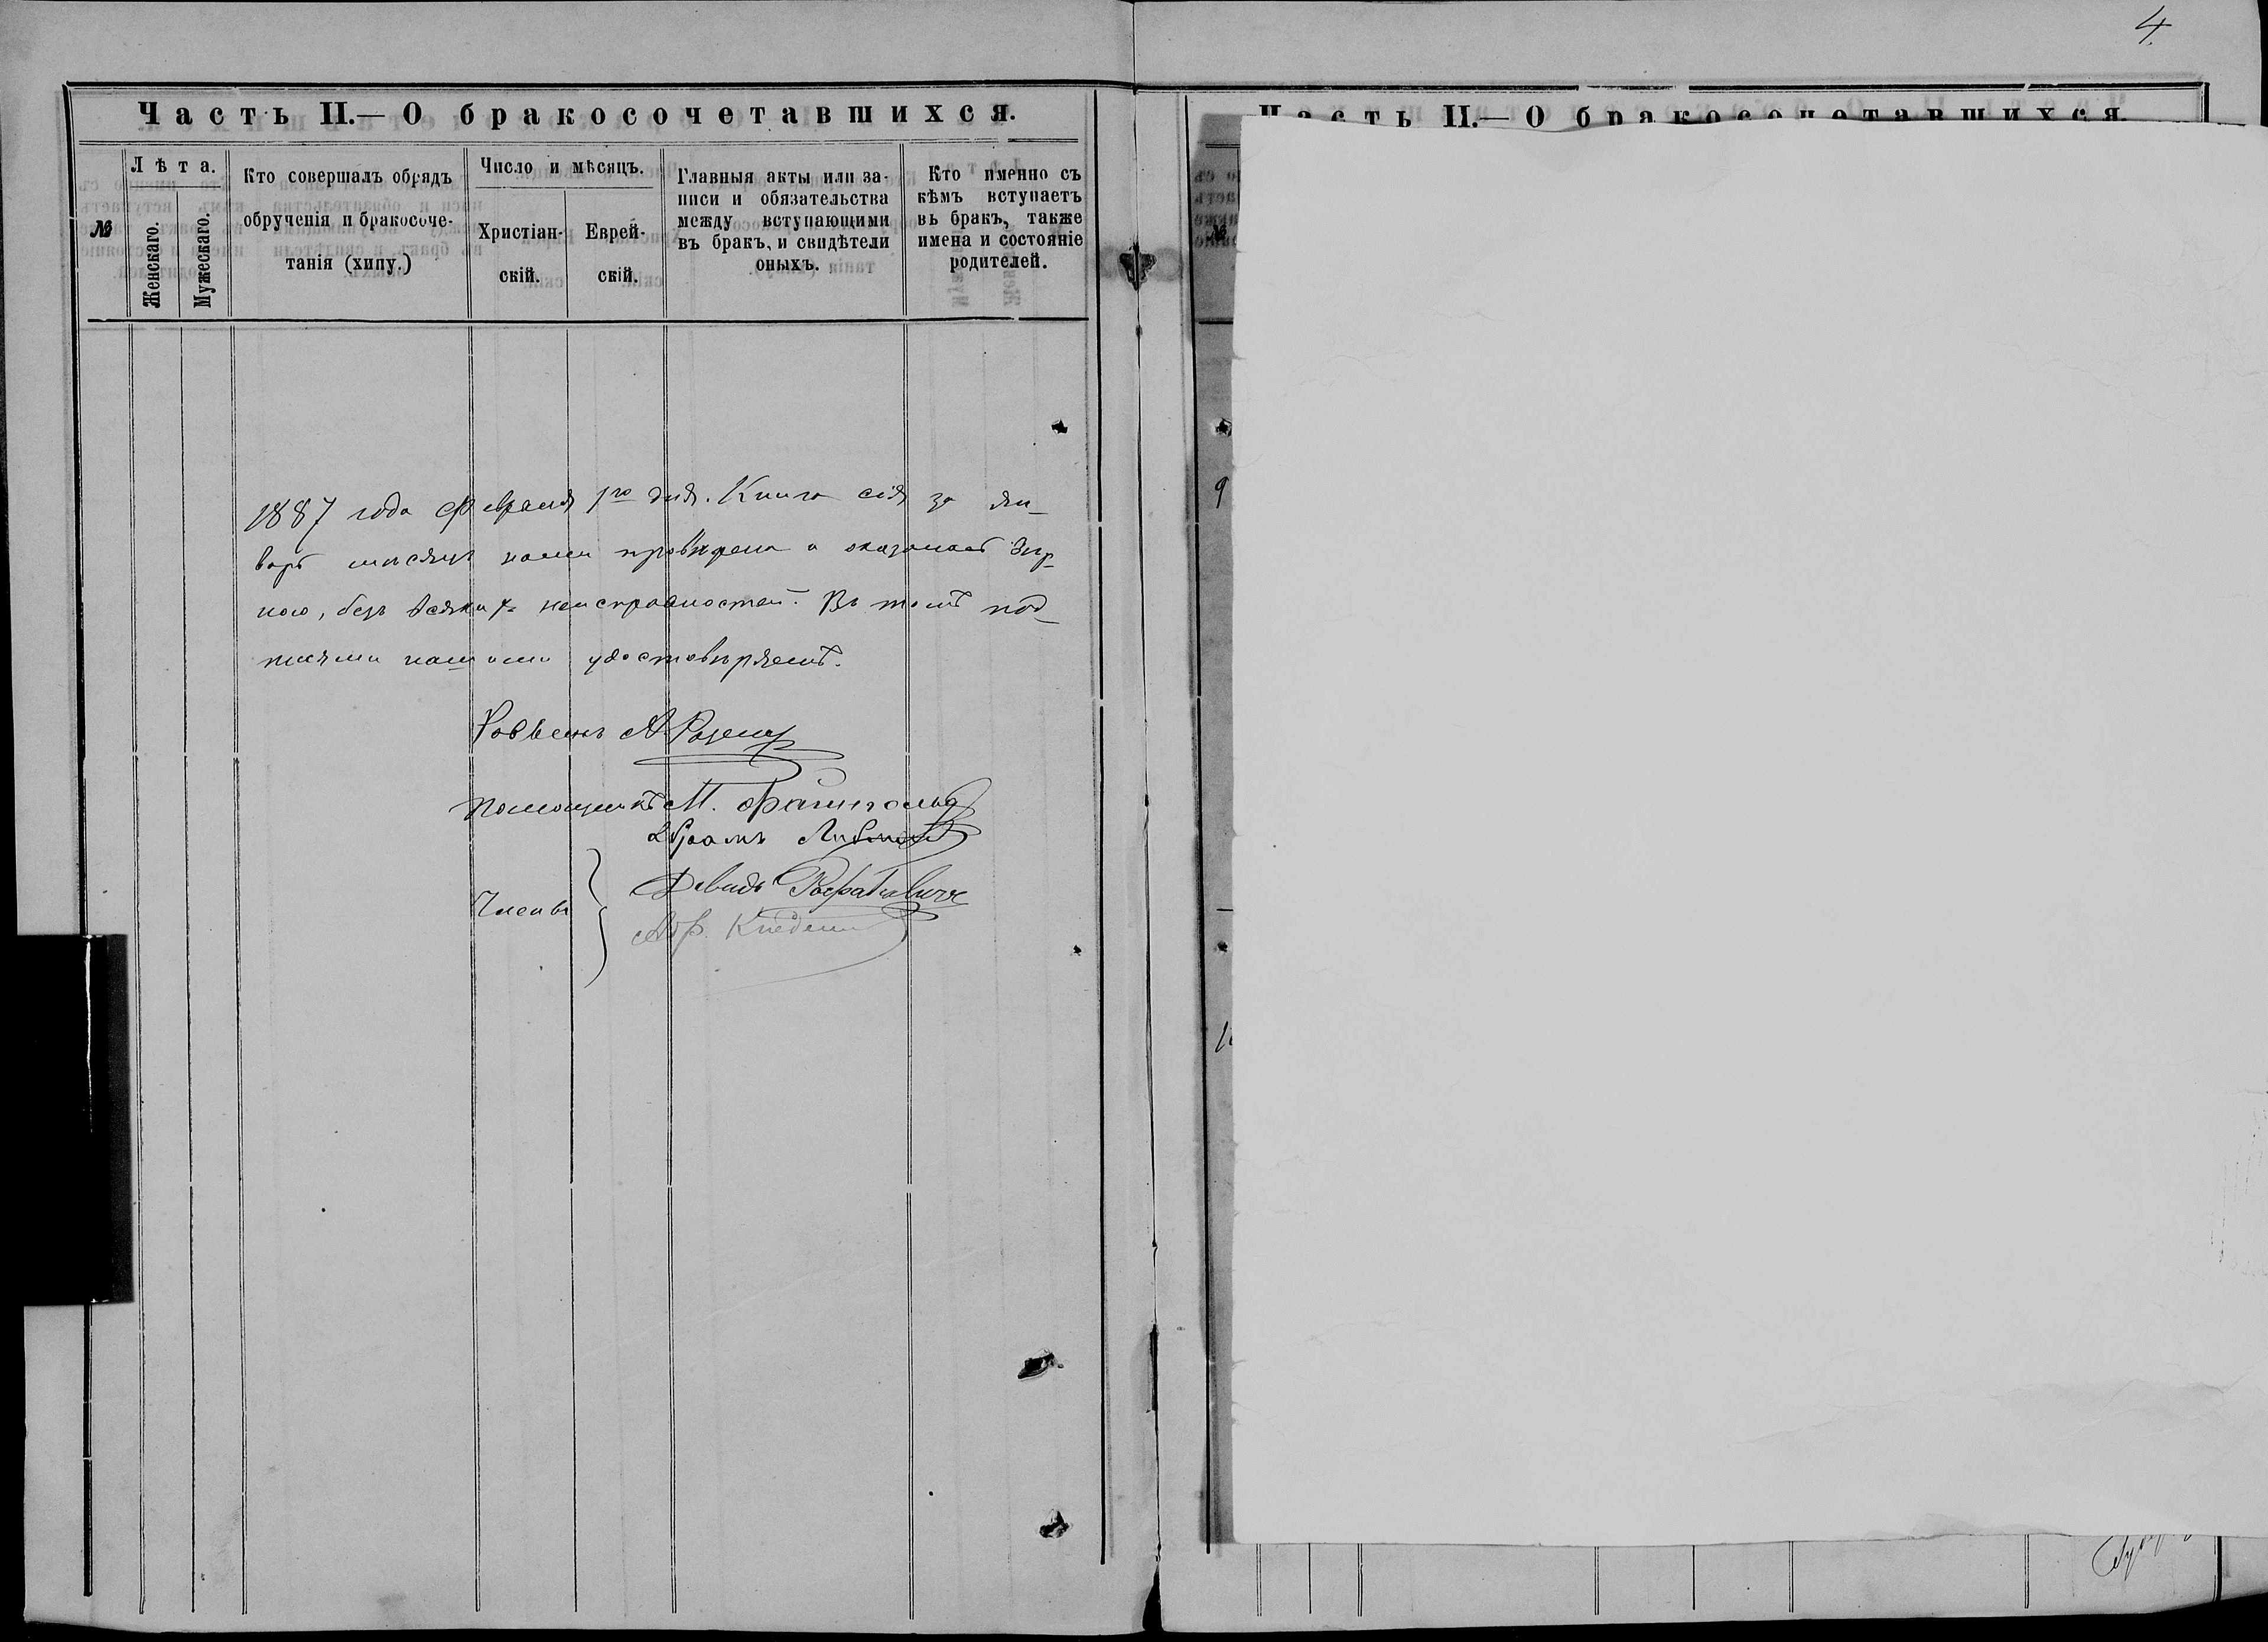 4.
Часть II.— О бракосочетавшихся.
№
Лѣта.
Женскаго.
Мужескаго.
Кто совершалъ обрядъ
обрученія и бракосоче-
танія (хипу.)
Число и мѣсяцъ.
Христіан-
скій.
Еврей-
скій.
Главныя акты или за-
писи и обязательства
между вступающими
въ бракъ, и свидѣтели
оныхъ.
Кто именно съ
кѣмъ вступаетъ
въ бракъ, также
имена и состояніе
родителей.
1887 года Февраля 1го дня. Книга сія за ян-
варь мѣсяцъ нами провѣрена и оказалась вѣр-
ною, безъ всякихъ неисправностей. Въ томъ под-
писями нашими удостовѣряемъ.
Раввинъ А.
Помощникъ М. Файнгольд
Абрамъ
Члены
Девидъ
Абр.
Часть II.— О бракосочетавшихся
№
9